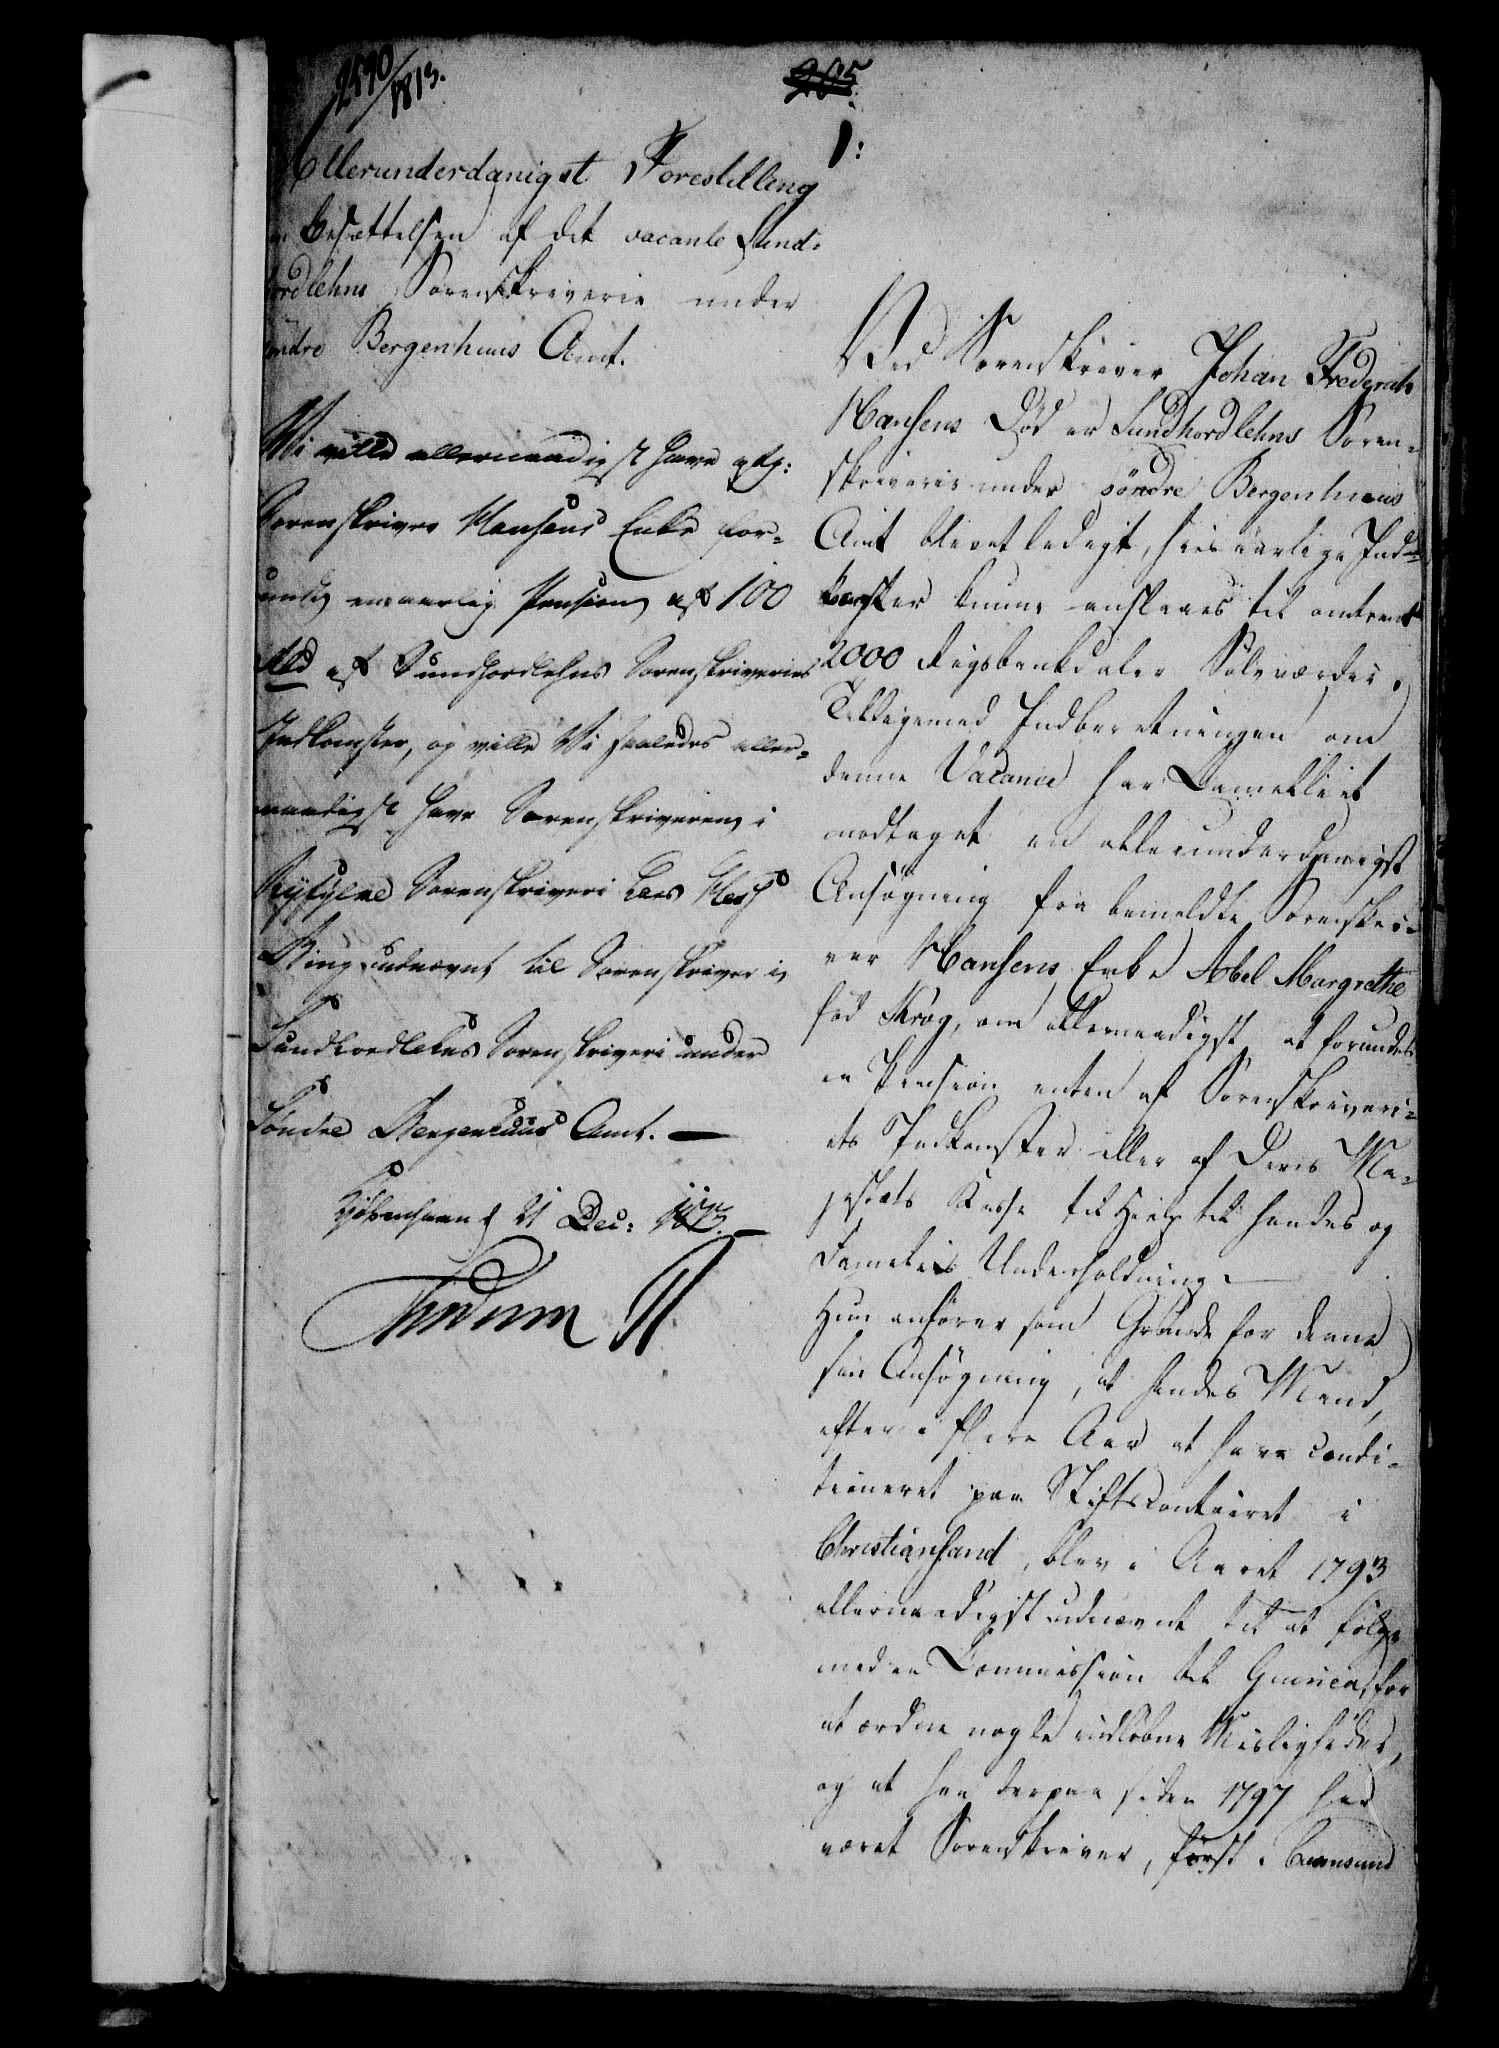 2590/1813.
205.
1:
Allerunderdanigst Forestilling
Besættelsen af det vacante Sund-
hordlehns Sorenskriverie under
Söndre Bergenhuus Amt.
Vi ville allernaadigst have
Sorenskriver Hansens Enke for-
undt en aarlig Pension af 100
Rbd af Sundhordlehns Sorenskriveries
Indkomster, og ville Vi saaledes aller-
naadigst have Sorenskriveren i
Ryfylke Sorenskriveri Lars
Bing udnævnt til Sorenskriver i
Sundhordlehns Sorenskriveri under
Söndre Bergenhuus Amt. —
Kjöbenhavn d 21 Dec: 1813. —
Frederik R
Ved Sorenskriver Johan Frederich
Hansens Död er Sundhordlehns Soren-
skriverie under söndre Bergenhuus
Amt blevet ledigt, hvis aarlige Ind-
komster kunne anslaaes til omtrent
2000 Rigsbankdaler Sölvværdie.
Tilligemed Indberetningen om
denne Vacance har Cancelliet
modtaget en allerunderdanigst
Ansögning fra bemeldte Sorenskri-
ver Hansens Enke Abel Margrethe
föd Krog, om allernaadigst at forundes
en Pension enten af Sorenskriveri-
ets Indkomster eller af Deres Ma-
jestæts Kasse til Hielp til hendes og
Families Underholdning. —
Hun anförer som Grunde for denne
sin Ansögning, at hendes Mand,
efter i flere Aar at have condi-
tioneret paa Stiftscontoiret i
Christiansand, blev i Aaret 1793
allernaadigst udnævnt til at fölge
med en Commission til Guinea, for
at ordne nogle indlöbne Misligheder,
og at han derpaa siden 1797 har
været Sorenskriver, först i